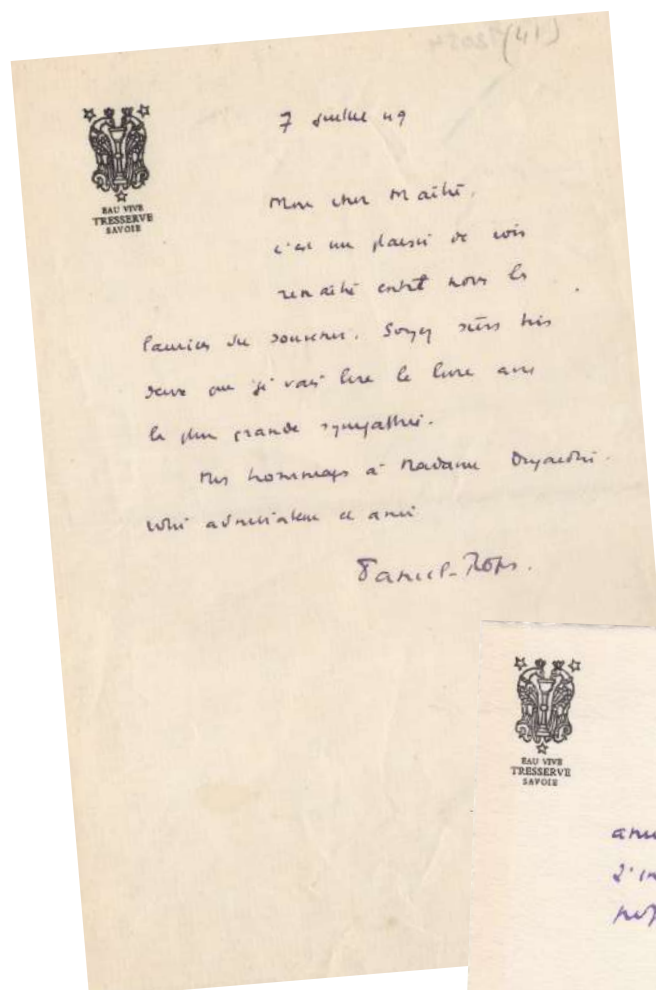 (41)
7 juillet 49
EAU VIVE
TRESSERVE
SAVOIE
Mon cher Maître,
c'est un plaisir de voir
renaître entre nous les
lauriers du souvenir. Soyez sûrs tous
deux que je vais lire le livre avec
la plus grande sympathie.
Mes hommages à Madame Dujardin.
votre admirateur et ami
Daniel-Rops.
EAU VIVE
TRESSERVE
SAVOIE